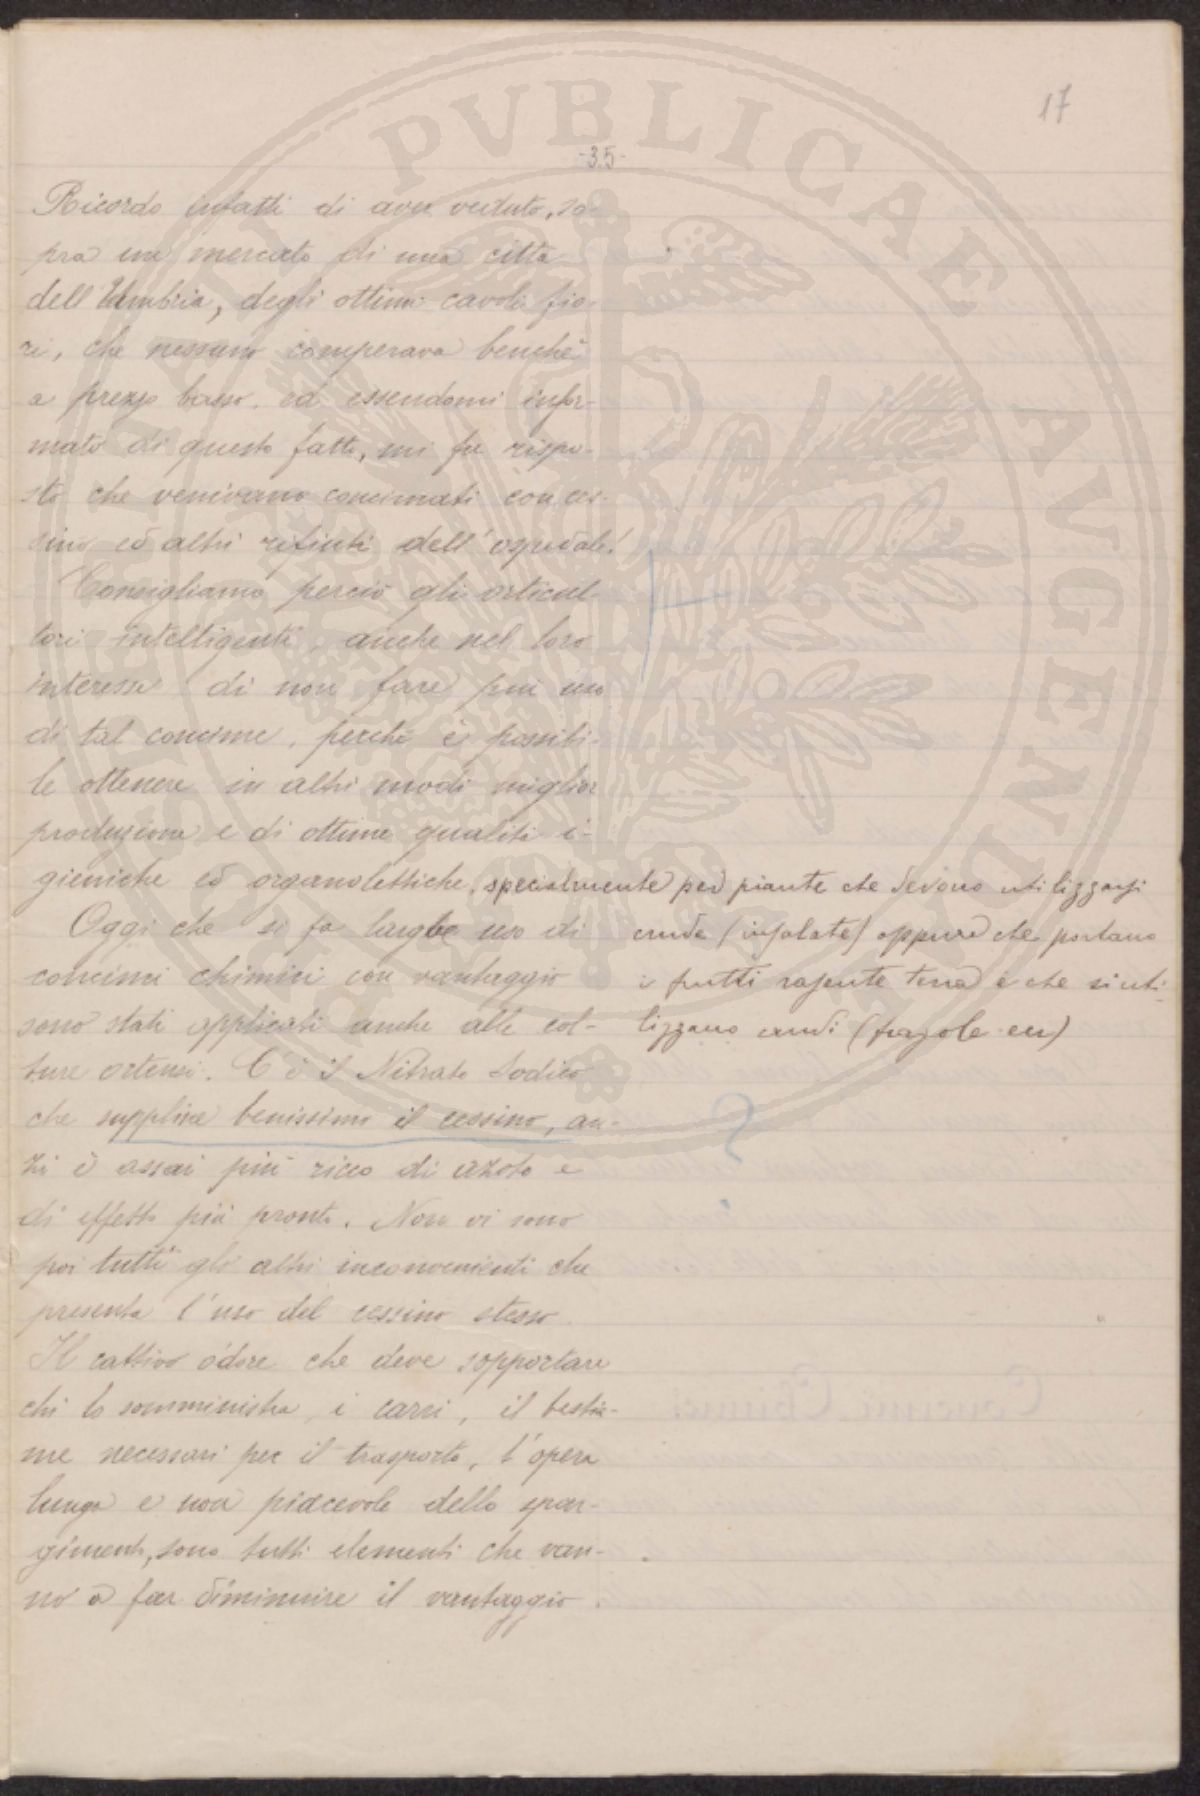 17
-35-
Ricordo infatti di aver veduto, so-
pra un mercato di una città
dell'Umbria, degli ottimi cavoli fio-
ri, che nessuno comperava benchè
a prezzo basso. ed essendomi infor-
mato di questo fatto, mi fu rispo-
sto che venivano concimati con ces-
sino ed altri rifiuti dell'ospedale!
Consigliamo perciò gli orticul-
tori intelligenti, anche nel loro
interesse di non fare più uso
di tal concime, perchè è possibi-
le ottenere in altri modi miglior
produzione e di ottime qualità i-
gieniche ed organolettiche, specialmente per piante che devono utilizzarsi
crude (insalate) oppure che portano
i frutti rasente terra e che si uti-
lizzano crudi (fragole ecc)
Oggi che si fa largo uso di
concimi chimici con vantaggio
sono stati applicati anche alle col-
ture ortensi. C'è il Nitrato Sodico
che supplisce benissimo il cessino, an-
zi è assai più ricco di azoto e
di effetto più pronto. Non vi sono
poi tutti gli altri inconvenienti che
presenta l'uso del cessino stesso.
Il cattivo odore che deve sopportare
chi lo somministra, i carri, il bestia-
me necessari per il trasporto, l'opera
lunga e non piacevole dello spar-
gimento, sono tutti elementi che van-
no a far diminuire il vantaggio.
PVBLICAE AVGENDO